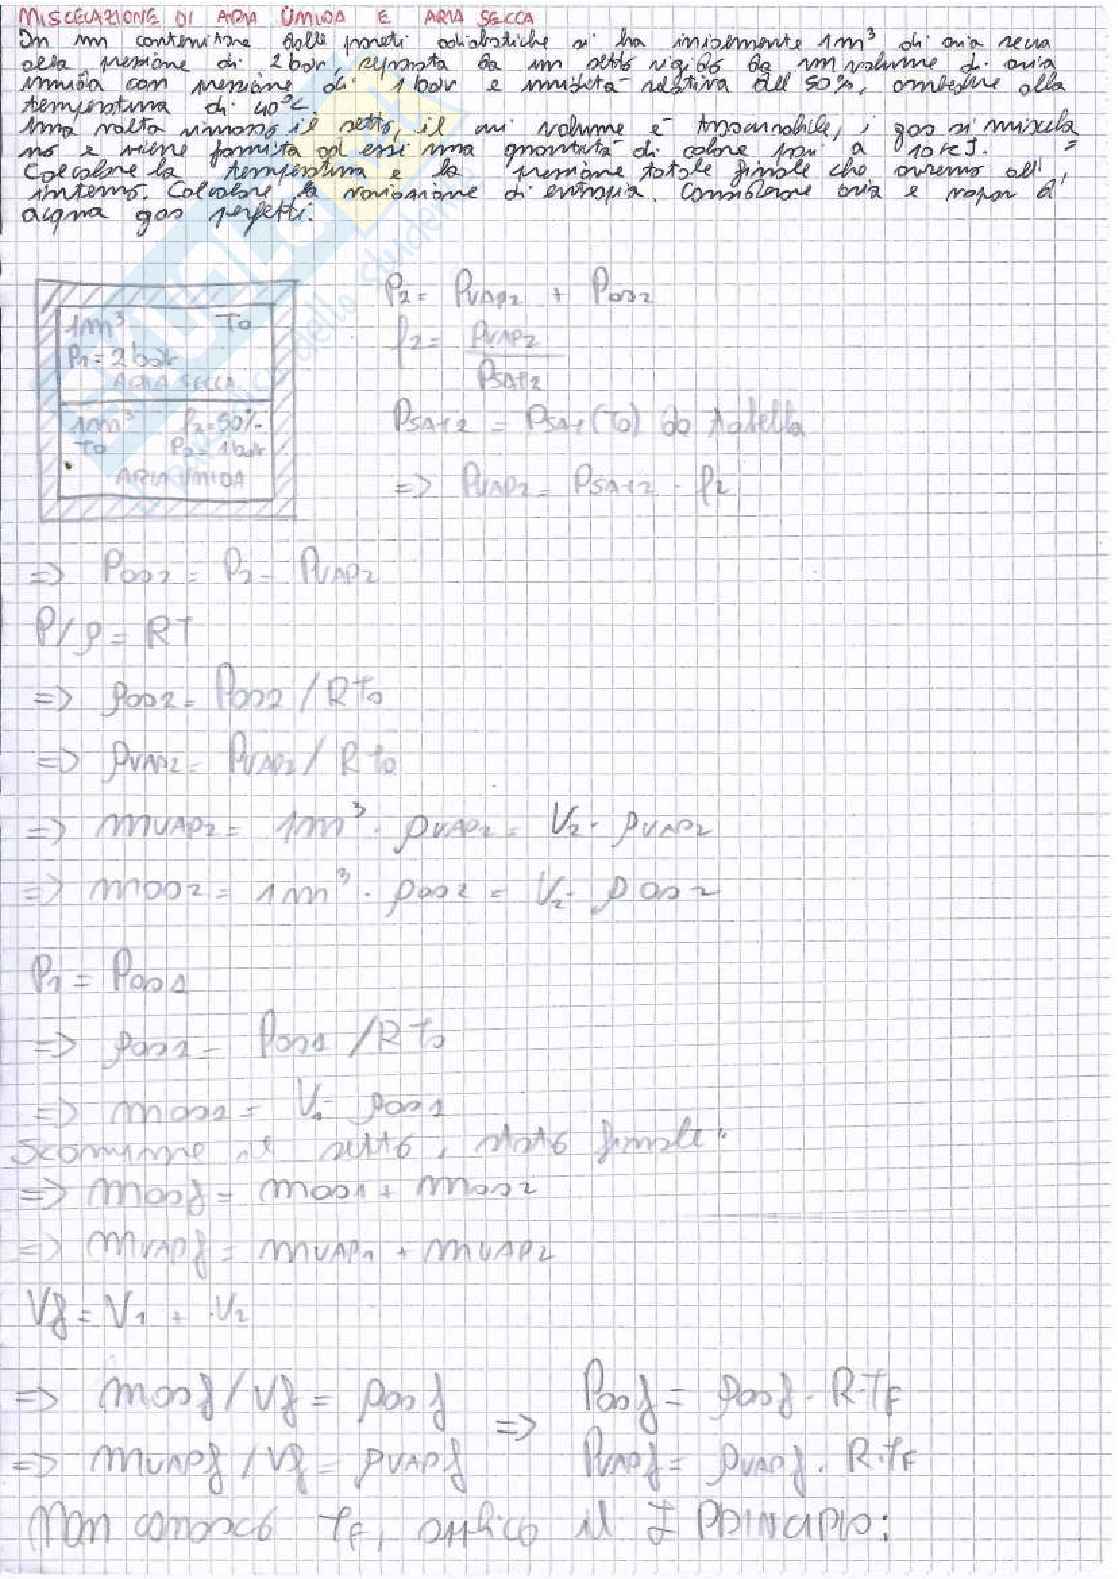 MISCELAZIONE DI ARIA UMIDA E ARIA SECCA
In un contenitore dalle pareti adiabatiche si ha inizialmente 1m³ di aria secca
alla pressione di 2 bar, separata da un setto rigido da un volume di aria
umida con pressione di 1 bar e umidità relativa del 50%, ambedue alla
temperatura di 40°C.
Una volta rimosso il setto, il cui volume è trascurabile, i gas si miscela
no e viene fornita ad essi una quantità di calore pari a 10 kJ.
Calcolare la temperatura e la pressione totale finale che avremo all'
interno. Calcolare la variazione di entropia. Considerare aria e vapor d'
acqua gas perfetti.
1m³ T0
P1 = 2 bar
ARIA SECCA
1m³ φ2=50%
T0 P2 = 1 bar
ARIA UMIDA
P2 = PVAP2 + Pas2
φ2 = PVAP2 / PSAT2
PSAT2 = PSAT(T0) da tabella
=> PVAP2 = PSAT2 · φ2
=> Pas2 = P2 - PVAP2
P/ρ = RT
=> ρas2 = Pas2 / RT0
=> ρVAP2 = PVAP2 / RT0
=> mVAP2 = 1m³ · ρVAP2 = V2 · ρVAP2
=> mas2 = 1m³ · ρas2 = V2 · ρas2
P1 = Pas1
=> ρas1 = Pas1 / RT0
=> mas1 = V1 · ρas1
Scompare il setto, stato finale:
=> masf = mas1 + mas2
=> mVAPf = mVAP1 + mVAP2
Vf = V1 + V2
=> masf / Vf = ρasf => Pasf = ρasf · R·TF
=> mVAPf / Vf = ρVAPf PVAPf = ρVAPf · R·TF
Non conosco TF, applico il I PRINCIPIO: